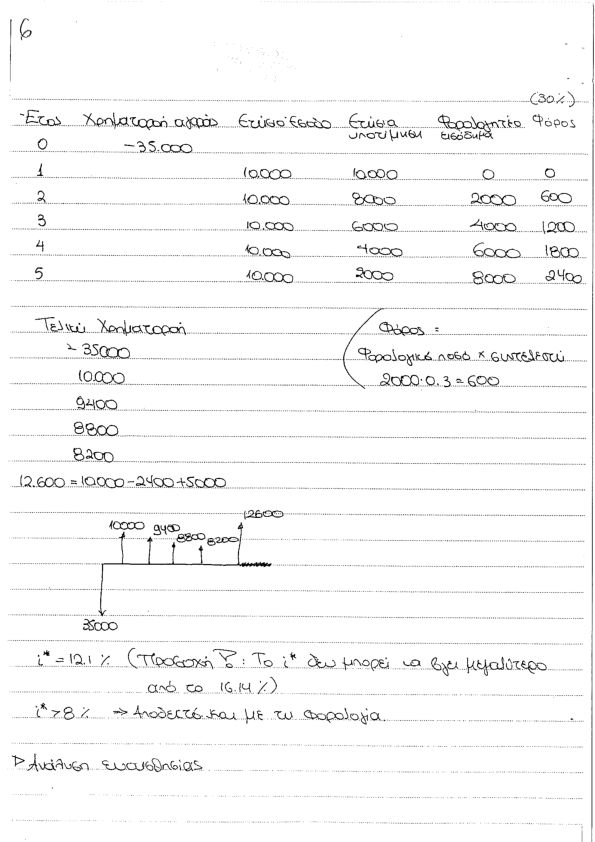 6
(30%)
Έτος Χρηματοροή αγοράς Ετήσιο Έσοδο Ετήσια υποτίμηση Φορολογητέο εισόδημα Φόρος
0 -35.000
1 10.000 10.000 0 0
2 10.000 8000 2000 600
3 10.000 6000 4000 1200
4 10.000 4000 6000 1800
5 10.000 2000 8000 2400
Τελική Χρηματοροή
- 35000
10.000
9400
8800
8200
12.600 = 10.000 - 2400 + 5000
Φόρος =
Φορολογικό ποσό × συντελεστή
2000 · 0.3 = 600
10000 9400 8800 8200 12600
35000
i* = 12.1 % (Προσοχή : Το i* δεν μπορεί να βγει μεγαλύτερο
από το 16.14 %)
i* > 8 % ⇒ Αποδεκτό και με τη φορολογία.
▷ Ανάλυση ευαισθησίας